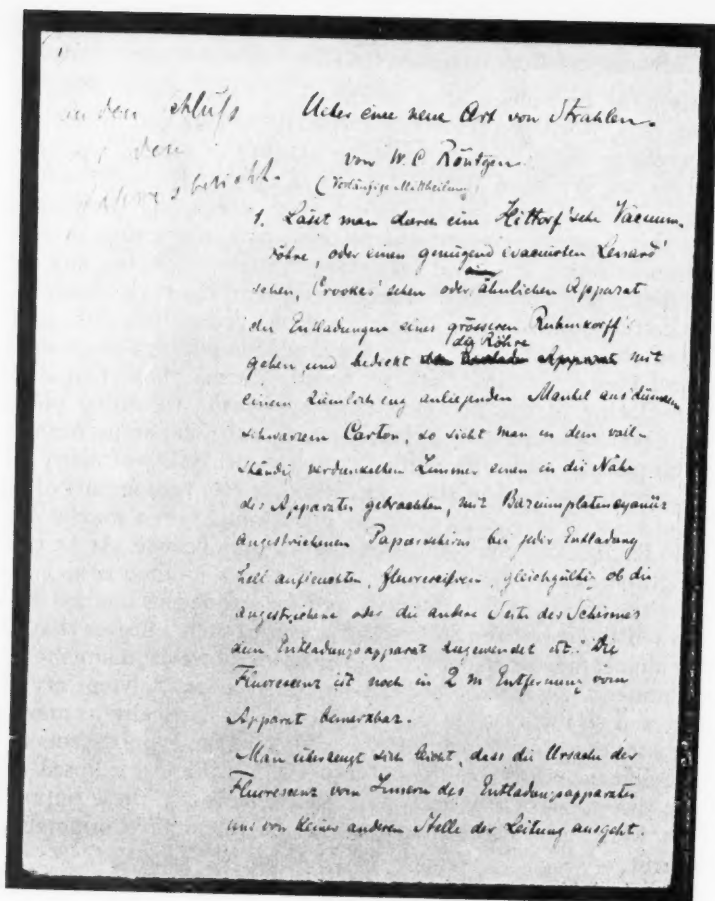 1.
an den Schluss
der den
Jahresbericht.
Ueber eine neue Art von Strahlen.
von W. C. Röntgen.
(Vorläufige Mittheilung)
1. Lässt man durch eine Hittorf'sche Vacuum-
röhre, oder einen genügend evacuirten Lenard'
schen, Crookes'schen oder ähnlichen Apparat
die Entladungen eines grösseren Ruhmkorff's
gehen und bedeckt die Röhre mit
einem ziemlich eng anliegenden Mantel aus dünnem
schwarzem Carton, so sieht man in dem voll-
ständig verdunkelten Zimmer einen in die Nähe
des Apparates gebrachten, mit Bariumplatincyanür
angestrichenen Papierschirm bei jeder Entladung
hell aufleuchten, fluoresciren, gleichgültig ob die
angestrichene oder die andere Seite des Schirmes
dem Entladungsapparat zugewendet ist. Die
Fluorescenz ist noch in 2 m Entfernung vom
Apparat bemerkbar.
Man überzeugt sich leicht, dass die Ursache der
Fluorescenz vom Innern des Entladungsapparates
und von keiner anderen Stelle der Leitung ausgeht.